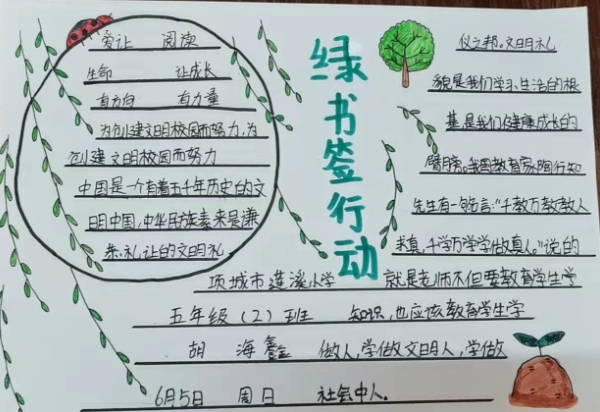 爱让 阅读
生命 让成长
有方向 有力量
为创建文明校园而努力,为
创建文明校园而努力
中国是一个有着五千年历史的文
明中国,中华民族素来是谦
恭,礼,让的文明礼
绿书签行动
仪之邦。文明礼
貌是我们学习、生活的根
基,是我们健康成长的
臂膀,我国教育家陶行知
先生有一句名言:"千教万教教人
求真,千学万学学做真人。"说的
就是老师不但要教育学生学
知识,也应该教育学生学
做人,学做文明人,学做
社会中人。
项城市莲溪小学
五年级(2)班
胡海鑫
6月5日 周日